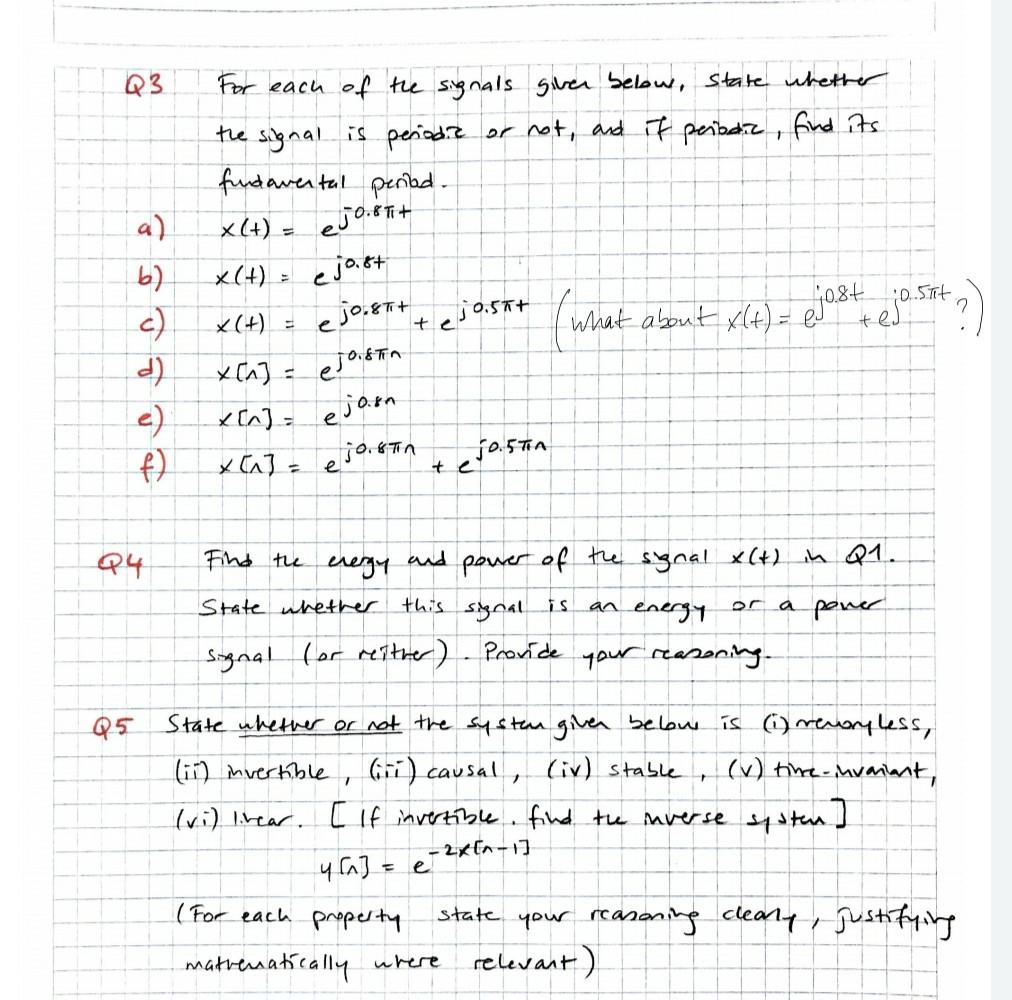 Q3 For each of the signals given below, state whether
the signal is periodic or not, and if periodic, find its
fundamental period.
a) x(t) = e^{j0.8πt}
b) x(t) = e^{j0.8t}
c) x(t) = e^{j0.8πt} + e^{j0.5πt} (what about x(t) = e^{j0.8t} + e^{j0.5πt} ?)
d) x[n] = e^{j0.8πn}
e) x[n] = e^{j0.8n}
f) x[n] = e^{j0.8πn} + e^{j0.5πn}
Q4 Find the energy and power of the signal x(t) in Q1.
State whether this signal is an energy or a power
signal (or neither). Provide your reasoning.
Q5 State whether or not the system given below is (i) memoryless,
(ii) invertible, (iii) causal, (iv) stable, (v) time-invariant,
(vi) linear. [If invertible, find the inverse system]
y[n] = e^{-2x[n-1]}
(For each property state your reasoning clearly, justifying
mathematically where relevant)